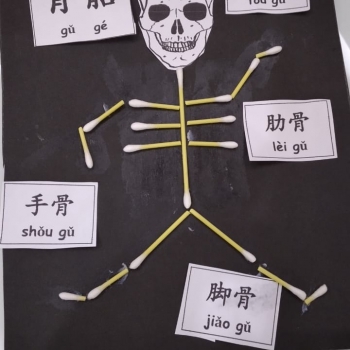 骨骼
gǔ gé
tóu gǔ
肋骨
lèi gǔ
手骨
shǒu gǔ
脚骨
jiǎo gǔ